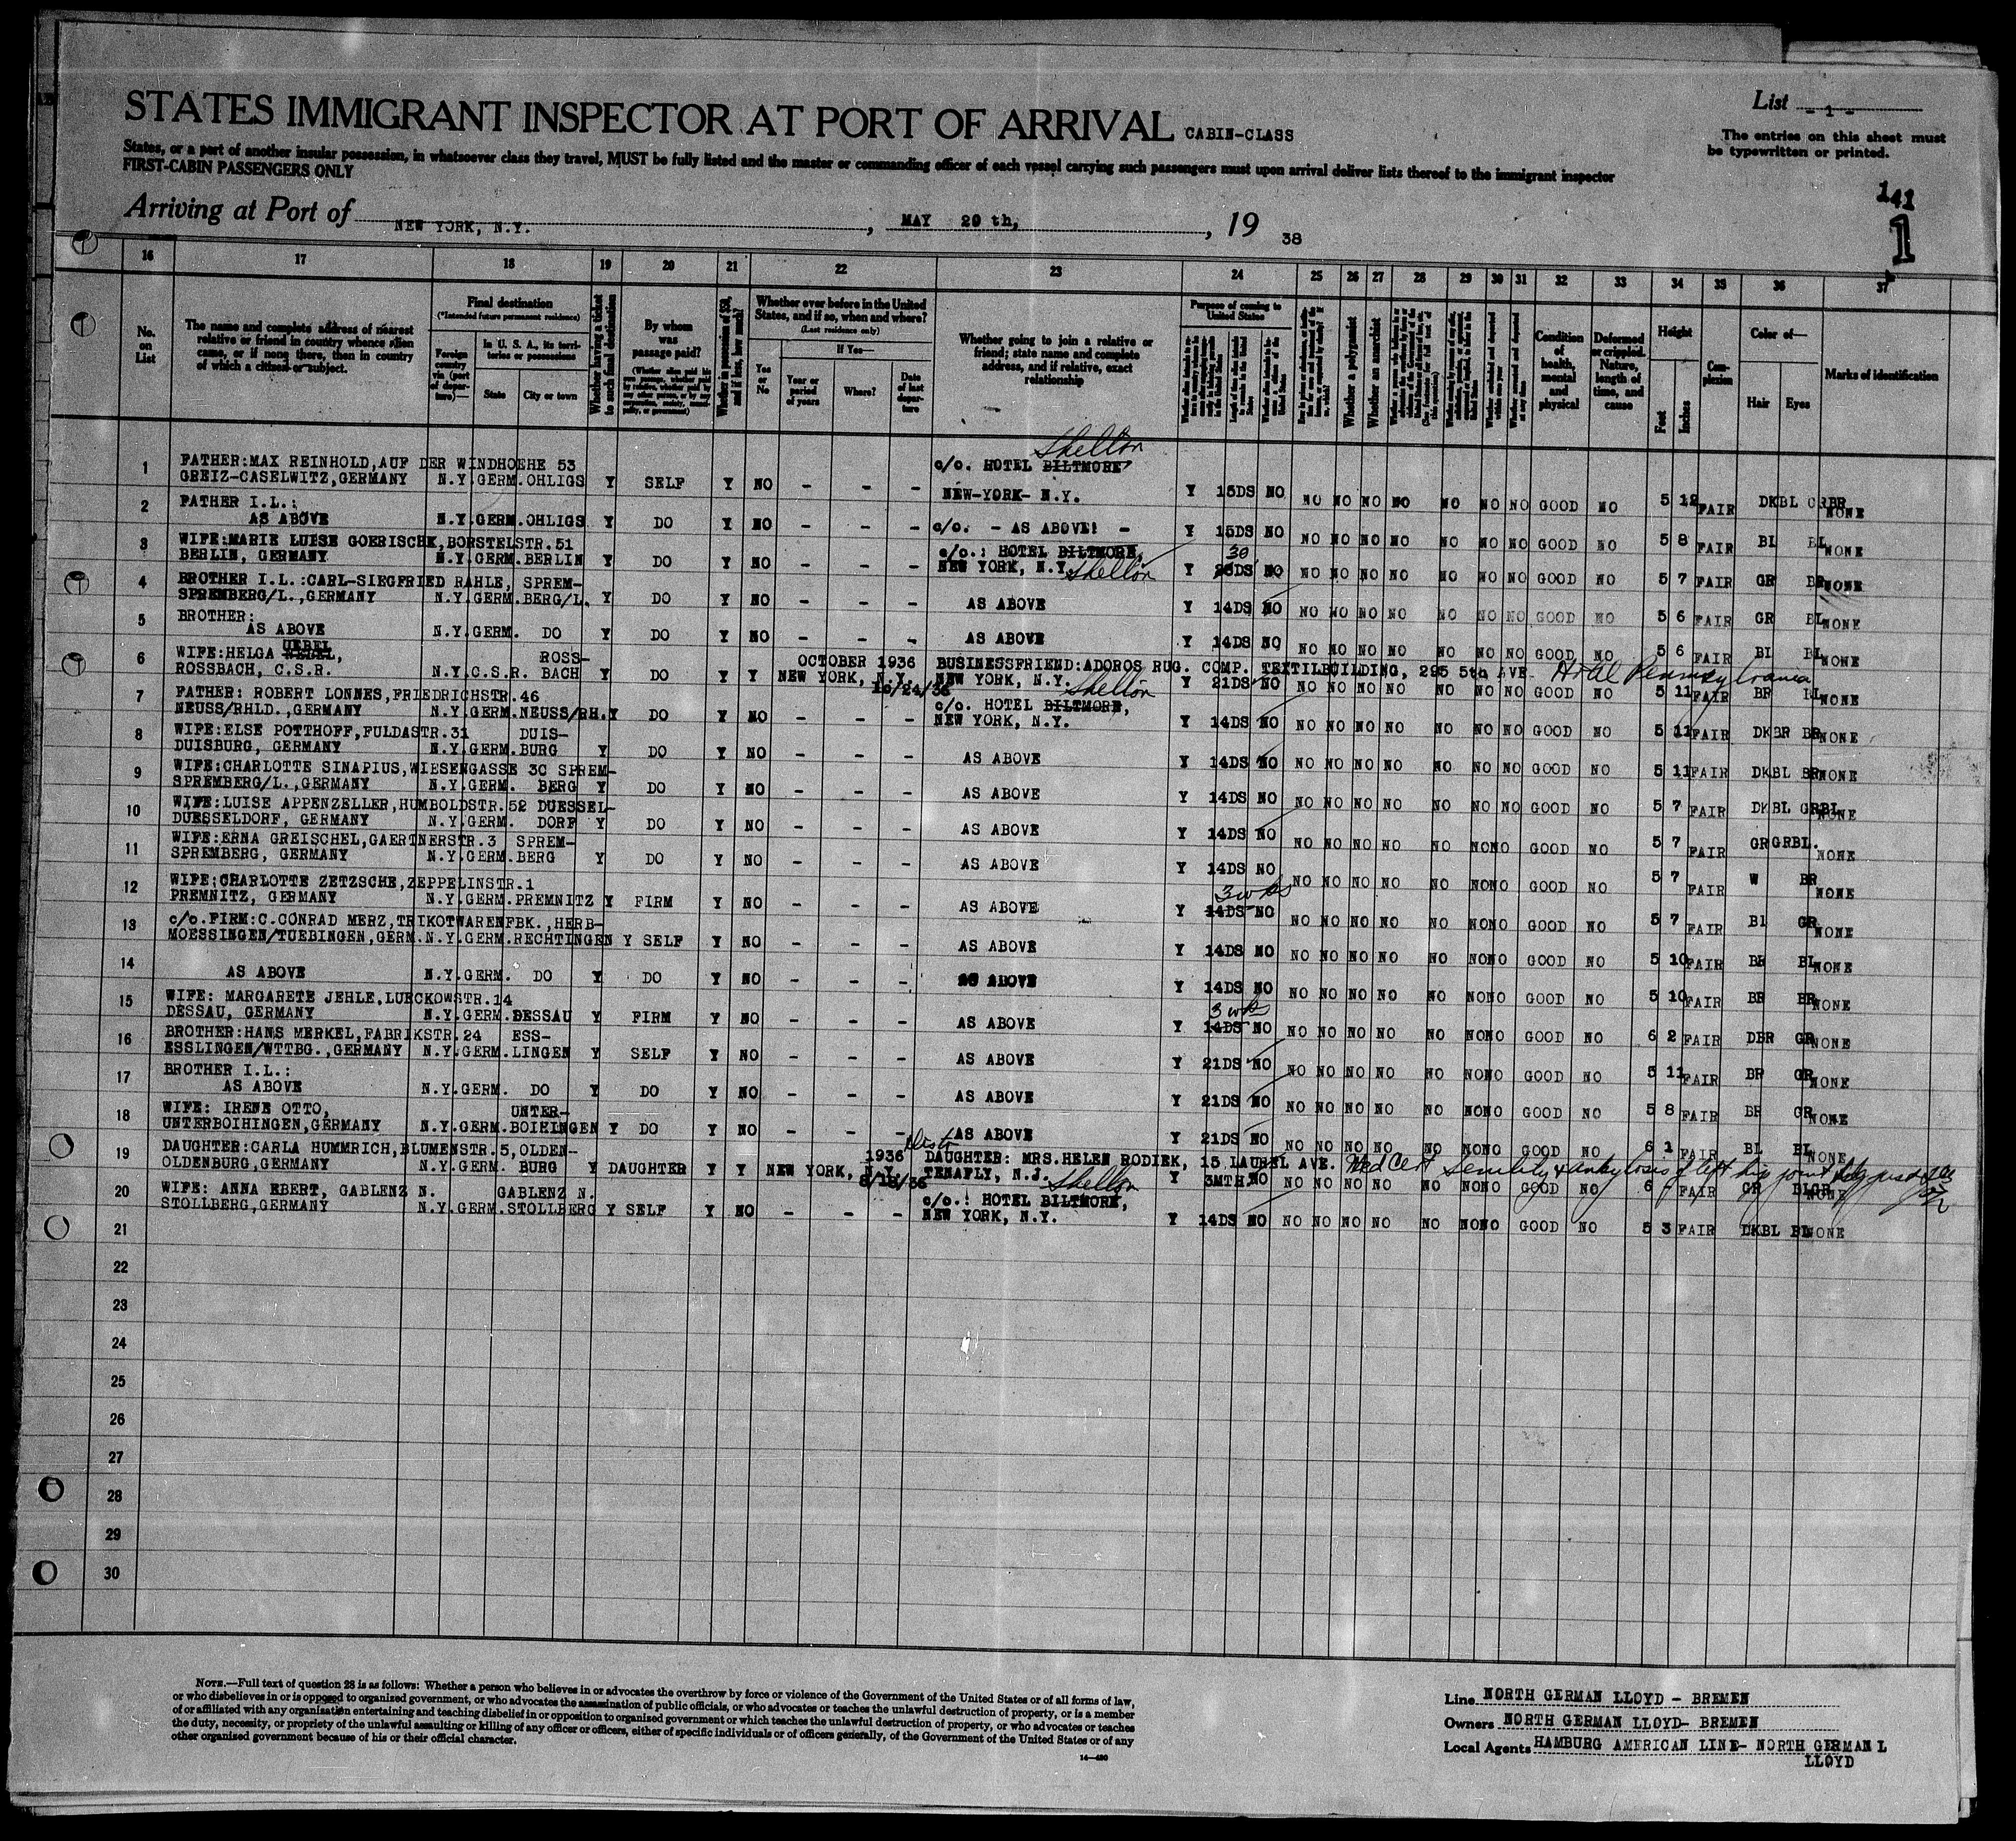 List - 1 -
STATES IMMIGRANT INSPECTOR AT PORT OF ARRIVAL CABIN-CLASS
The entries on this sheet must
be typewritten or printed.
States, or a port of another insular possession, in whatsoever class they travel, MUST be fully listed and the master or commanding officer of each vessel carrying such passengers must upon arrival deliver lists thereof to the immigrant inspector
FIRST-CABIN PASSENGERS ONLY
141
1
Arriving at Port of NEW YORK, N.Y., MAY 20 th, 19 38
16 17 18 19 20 21 22 23 24 25 26 27 28 29 30 31 32 33 34 35 36 37
No. on List
The name and complete address of nearest relative or friend in country whence alien came, or if none there, then in country of which a citizen or subject.
Final destination
(*Intended future permanent residence)
Foreign country via (port of departure)—
In U. S. A., its territories or possessions
State
City or town
Whether having a ticket to such final destination
By whom was passage paid?
Whether in possession of $50, and if less, how much?
Whether ever before in the United States, and if so, when and where?
(Last residence only)
Yes or No
If Yes—
Year or period of years
Where?
Date of last departure
Whether going to join a relative or friend; state name and complete address, and if relative, exact relationship
Purpose of coming to United States
Whether a polygamist
Whether an anarchist
Condition of health, mental and physical
Deformed or crippled. Nature, length of time, and cause
Height
Feet
Inches
Complexion
Color of—
Hair
Eyes
Marks of identification
Shelton
1 FATHER:MAX REINHOLD,AUF DER WINDHOEHE 53 c/o. HOTEL BILTMORE
GREIZ-CASELWITZ,GERMANY N.Y.GERM.OHLIGS Y SELF Y NO - - - NEW-YORK- N.Y. Y 15DS NO NO NO NO NO NO NO NO GOOD NO 5 12 FAIR DKBL GRBR NONE
2 FATHER I.L.:
AS ABOVE N.Y.GERM.OHLIGS Y DO Y NO - - - c/o. - AS ABOVE! - Y 15DS NO NO NO NO NO NO NO NO GOOD NO 5 8 FAIR BL BL NONE
3 WIFE:MARIE LUISE GOERISCHK,BORSTELSTR.51 c/o.: HOTEL BILTMORE, 30
BERLIN, GERMANY N.Y.GERM.BERLIN Y DO Y NO - - - NEW YORK, N.Y. Shelton Y NO NO NO NO NO NO NO NO GOOD NO 5 7 FAIR GR BR NONE
4 BROTHER I.L.:CARL-SIEGFRIED RAHLE, SPREM-
SPREMBERG/L.,GERMANY N.Y.GERM.BERG/L. Y DO Y NO - - - AS ABOVE Y 14DS NO NO NO NO NO NO NO NO GOOD NO 5 6 FAIR GR BL NONE
5 BROTHER:
AS ABOVE N.Y.GERM. DO Y DO Y NO - - - AS ABOVE Y 14DS NO NO NO NO NO NO NO NO GOOD NO 5 6 FAIR BL BL NONE
UEBEL
6 WIFE:HELGA NEBEL, ROSS- OCTOBER 1936 BUSINESSFRIEND:ADOROS RUG. COMP. TEXTILBUILDING, 295 5th AVE. Hotel Pennsylvania
ROSSBACH, C.S.R. N.Y.C.S.R. BACH Y DO Y Y NEW YORK, N.Y. 10/24/36 NEW YORK, N.Y. Y 21DS NO NO NO NO NO NO NO NO GOOD NO 5 11 FAIR BR BL NONE
Shelton
7 FATHER: ROBERT LONNES,FRIEDRICHSTR.46 c/o. HOTEL BILTMORE,
NEUSS/RHLD.,GERMANY N.Y.GERM.NEUSS/RH.Y DO Y NO - - - NEW YORK, N.Y. Y 14DS NO NO NO NO NO NO NO NO GOOD NO 5 11 FAIR DKBR BR NONE
8 WIFE:ELSE POTTHOFF,FULDASTR.31 DUIS-
DUISBURG, GERMANY N.Y.GERM.BURG Y DO Y NO - - - AS ABOVE Y 14DS NO NO NO NO NO NO NO NO GOOD NO 5 11 FAIR DKBL BR NONE
9 WIFE:CHARLOTTE SINAPIUS,WIESENGASSE 3C SPREM-
SPREMBERG/L.,GERMANY N.Y.GERM. BERG Y DO Y NO - - - AS ABOVE Y 14DS NO NO NO NO NO NO NO NO GOOD NO 5 7 FAIR DKBL GRBL NONE
10 WIFE:LUISE APPENZELLER,HUMBOLDSTR.52 DUESSEL-
DUESSELDORF, GERMANY N.Y.GERM. DORF Y DO Y NO - - - AS ABOVE Y 14DS NO NO NO NO NO NO NONO GOOD NO 5 7 FAIR GRGRBL. NONE
11 WIFE:ERNA GREISCHEL,GAERTNERSTR.3 SPREM-
SPREMBERG, GERMANY N.Y.GERM.BERG Y DO Y NO - - - AS ABOVE Y 14DS NO NO NO NO NO NO NONO GOOD NO 5 7 FAIR W BR NONE
12 WIFE:CHARLOTTE ZETZSCHE,ZEPPELINSTR.1 3 wks
PREMNITZ, GERMANY N.Y.GERM.PREMNITZ Y FIRM Y NO - - - AS ABOVE Y 14DS NO NO NO NO NO NO NONO GOOD NO 5 7 FAIR Bl GR NONE
13 c/o.FIRM:C.CONRAD MERZ,TRIKOTWARENFBK.,HERB-
MOESSINGEN/TUEBINGEN,GERM.N.Y.GERM.RECHTINGEN Y SELF Y NO - - - AS ABOVE Y 14DS NO NO NO NO NO NO NONO GOOD NO 5 10 FAIR BR BL NONE
14 AS ABOVE N.Y.GERM. DO Y DO Y NO - - - AS ABOVE Y 14DS NO NO NO NO NO NO NONO GOOD NO 5 10 FAIR BR BR NONE
15 WIFE: MARGARETE JEHLE,LUECKOWSTR.14 3 wks
DESSAU, GERMANY N.Y.GERM.DESSAU Y FIRM Y NO - - - AS ABOVE Y 14DS NO NO NO NO NO NO NONO GOOD NO 6 2 FAIR DBR GR NONE
16 BROTHER:HANS MERKEL,FABRIKSTR.24 ESS-
ESSLINGEN/WTTBG.,GERMANY N.Y.GERM.LINGEN Y SELF Y NO - - - AS ABOVE Y 21DS NO NO NO NO NO NO NONO GOOD NO 5 11 FAIR BR GR NONE
17 BROTHER I.L.:
AS ABOVE N.Y.GERM. DO Y DO Y NO - - - AS ABOVE Y 21DS NO NO NO NO NO NO NONO GOOD NO 5 8 FAIR BR GR NONE
18 WIFE: IRENE OTTO, UNTER-
UNTERBOIHINGEN,GERMANY N.Y.GERM.BOIHINGEN Y DO Y NO - - - AS ABOVE Y 21DS NO NO NO NO NO NO NONO GOOD NO 6 1 FAIR BL BL NONE
19 DAUGHTER:CARLA HUMMRICH,BLUMENSTR.5,OLDEN- 1936 DAUGHTER: MRS.HELEN RODIEK, 15 LAUREL AVE. Med Cert Senility & ankylosis of left hip joint
OLDENBURG,GERMANY N.Y.GERM. BURG Y DAUGHTER Y Y NEW YORK, N.Y. 8/18/36 TENAFLY, N.J. Y 3MTH NO NO NO NO NO NO NONO GOOD NO 6 FAIR GR BLGR NONE
Shelton
20 WIFE: ANNA EBERT, GABLENZ N. GABLENZ N. c/o.: HOTEL BILTMORE,
STOLLBERG,GERMANY N.Y.GERM.STOLLBERG Y SELF Y NO - - - NEW YORK, N.Y. Y 14DS NO NO NO NO NO NO NONO GOOD NO 5 3 FAIR DKBL BL NONE
21
22
23
24
25
26
27
28
29
30
NOTE.—Full text of question 28 is as follows: Whether a person who believes in or advocates the overthrow by force or violence of the Government of the United States or of all forms of law,
or who disbelieves in or is opposed to organized government, or who advocates the assassination of public officials, or who advocates or teaches the unlawful destruction of property, or is a member
of or affiliated with any organization entertaining and teaching disbelief in or opposition to organized government or which teaches the unlawful destruction of property, or who advocates or teaches
the duty, necessity, or propriety of the unlawful assaulting or killing of any officer or officers, either of specific individuals or of officers generally, of the Government of the United States or of any
other organized government because of his or their official character.
14—480
Line NORTH GERMAN LLOYD - BREMEN
Owners NORTH GERMAN LLOYD- BREMEN
Local Agents HAMBURG AMERICAN LINE- NORTH GERMAN L
LLOYD